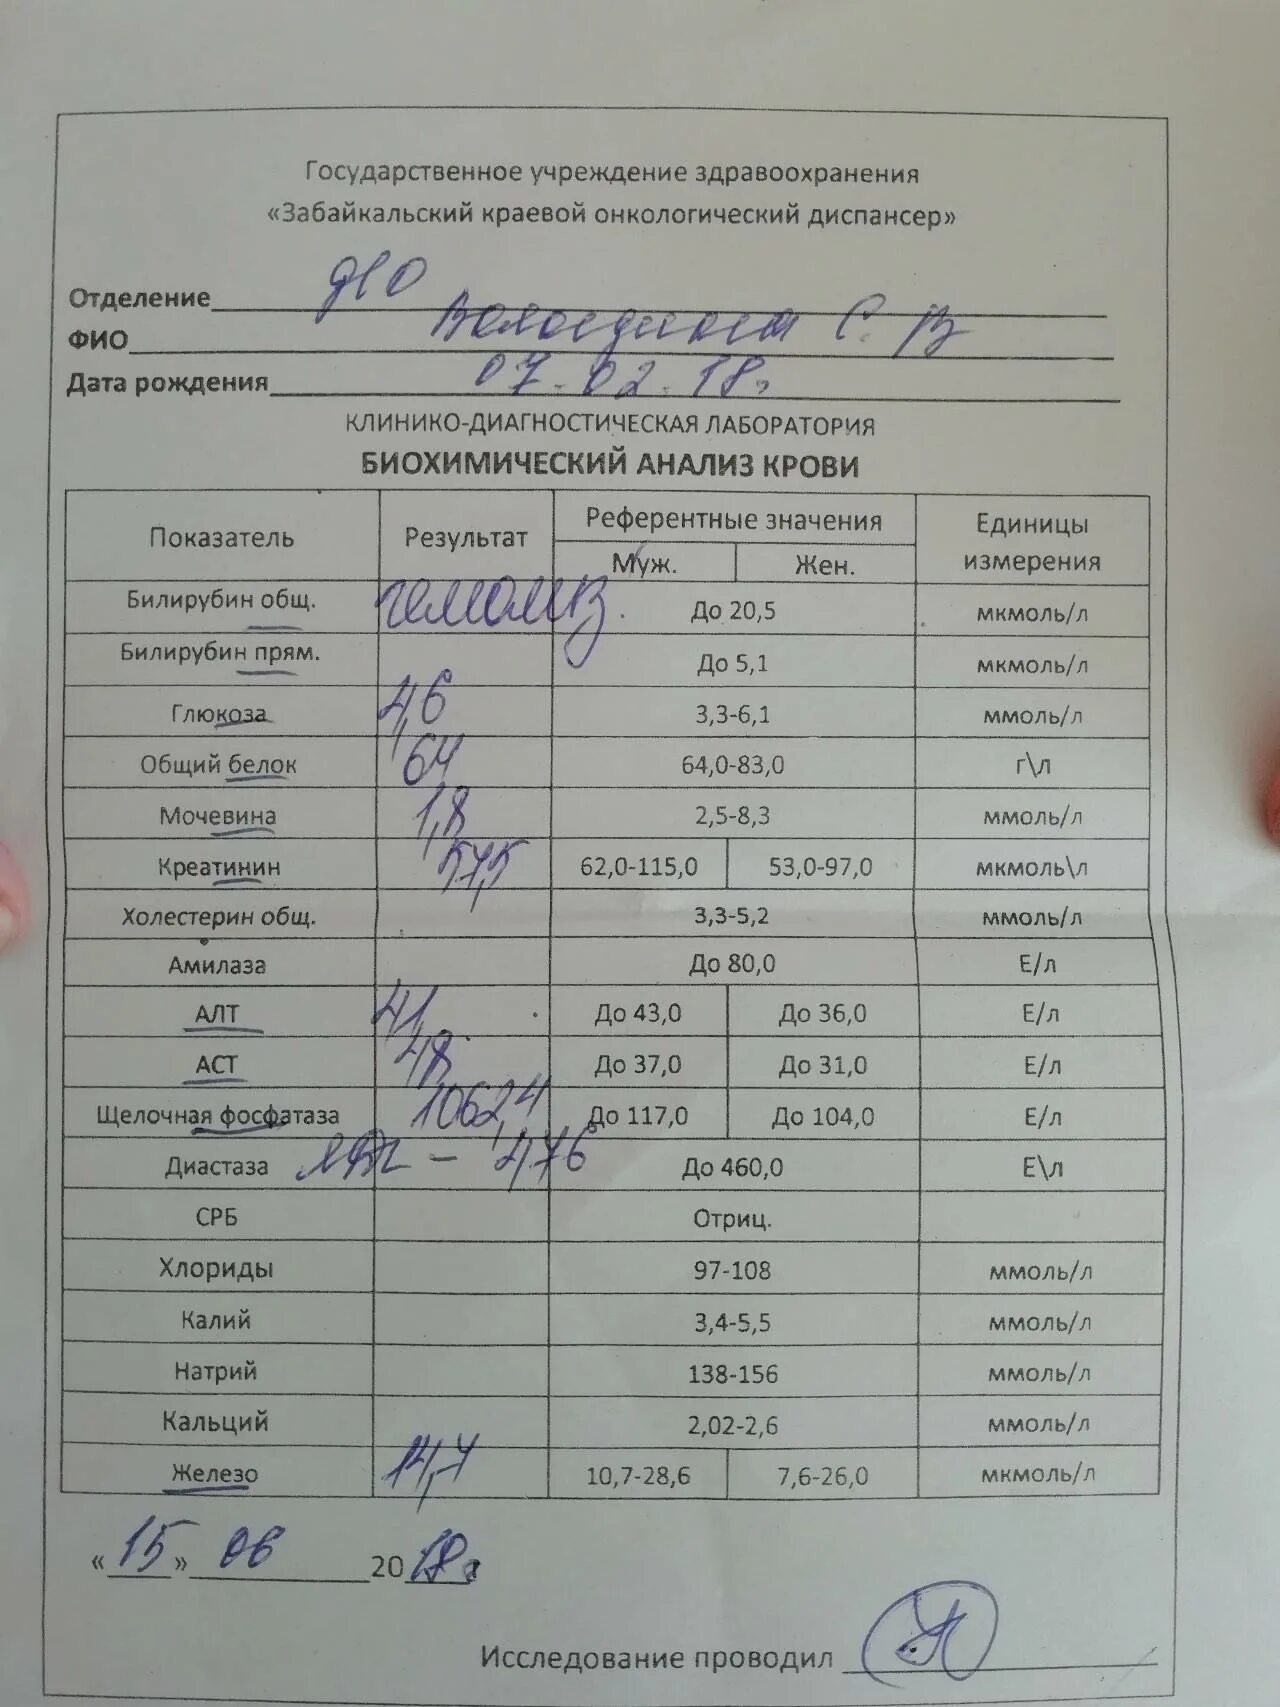 Государственное учреждение здравоохранения
«Забайкальский краевой онкологический диспансер»
Отделение ДНО
ФИО С. В
Дата рождения 07.02.18г
КЛИНИКО-ДИАГНОСТИЧЕСКАЯ ЛАБОРАТОРИЯ
БИОХИМИЧЕСКИЙ АНАЛИЗ КРОВИ
Показатель Результат Референтные значения Единицы измерения
Муж. Жен.
Билирубин общ. гемолиз. До 20,5 мкмоль/л
Билирубин прям. До 5,1 мкмоль/л
Глюкоза 4,6 3,3-6,1 ммоль/л
Общий белок 64 64,0-83,0 г\л
Мочевина 1,8 2,5-8,3 ммоль/л
Креатинин 57,5 62,0-115,0 53,0-97,0 мкмоль\л
Холестерин общ. 3,3-5,2 ммоль/л
Амилаза До 80,0 Е/л
АЛТ 41 До 43,0 До 36,0 Е/л
АСТ 48 До 37,0 До 31,0 Е/л
Щелочная фосфатаза 1062,4 До 117,0 До 104,0 Е/л
Диастаза ЛДГ - 476 До 460,0 Е\л
СРБ Отриц.
Хлориды 97-108 ммоль/л
Калий 3,4-5,5 ммоль/л
Натрий 138-156 ммоль/л
Кальций 2,02-2,6 ммоль/л
Железо 14,7 10,7-28,6 7,6-26,0 мкмоль/л
«15» 06 2018г
Исследование проводил